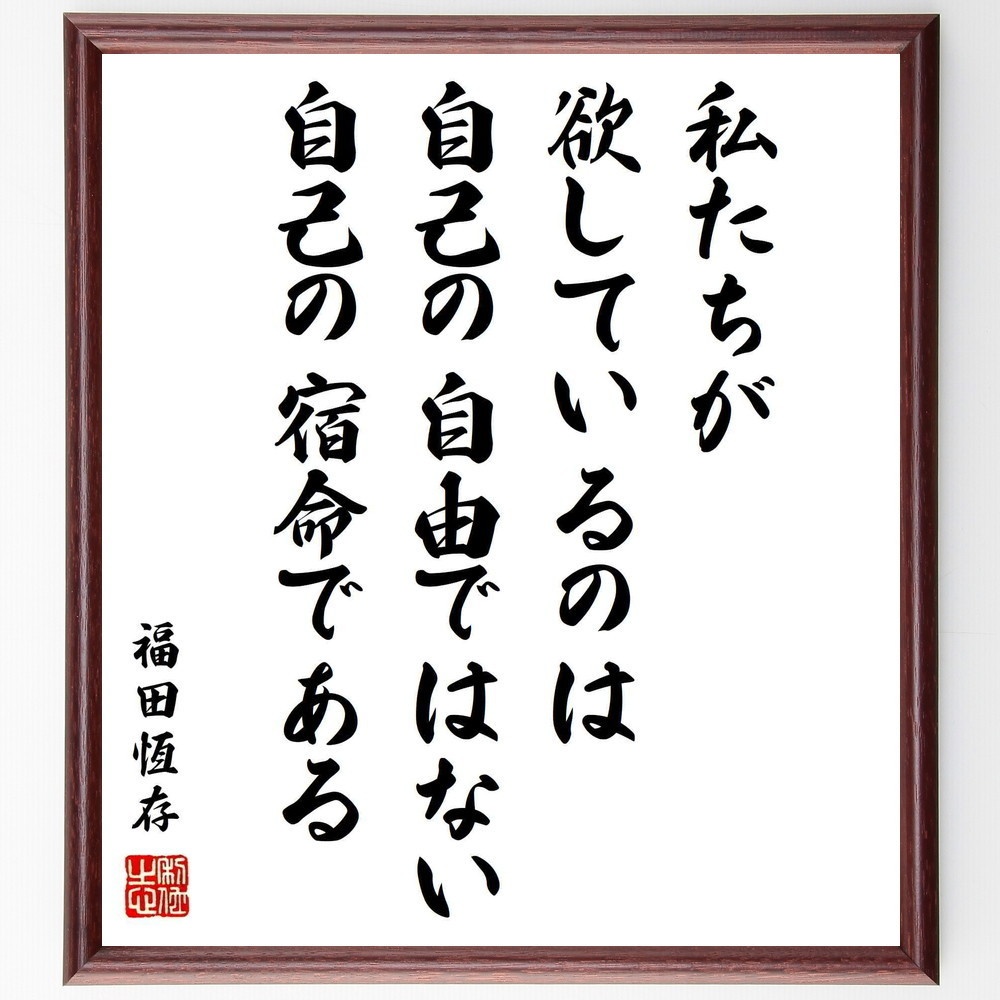 私たちが
欲しているのは
自己の自由ではない
自己の宿命である
福田恆存